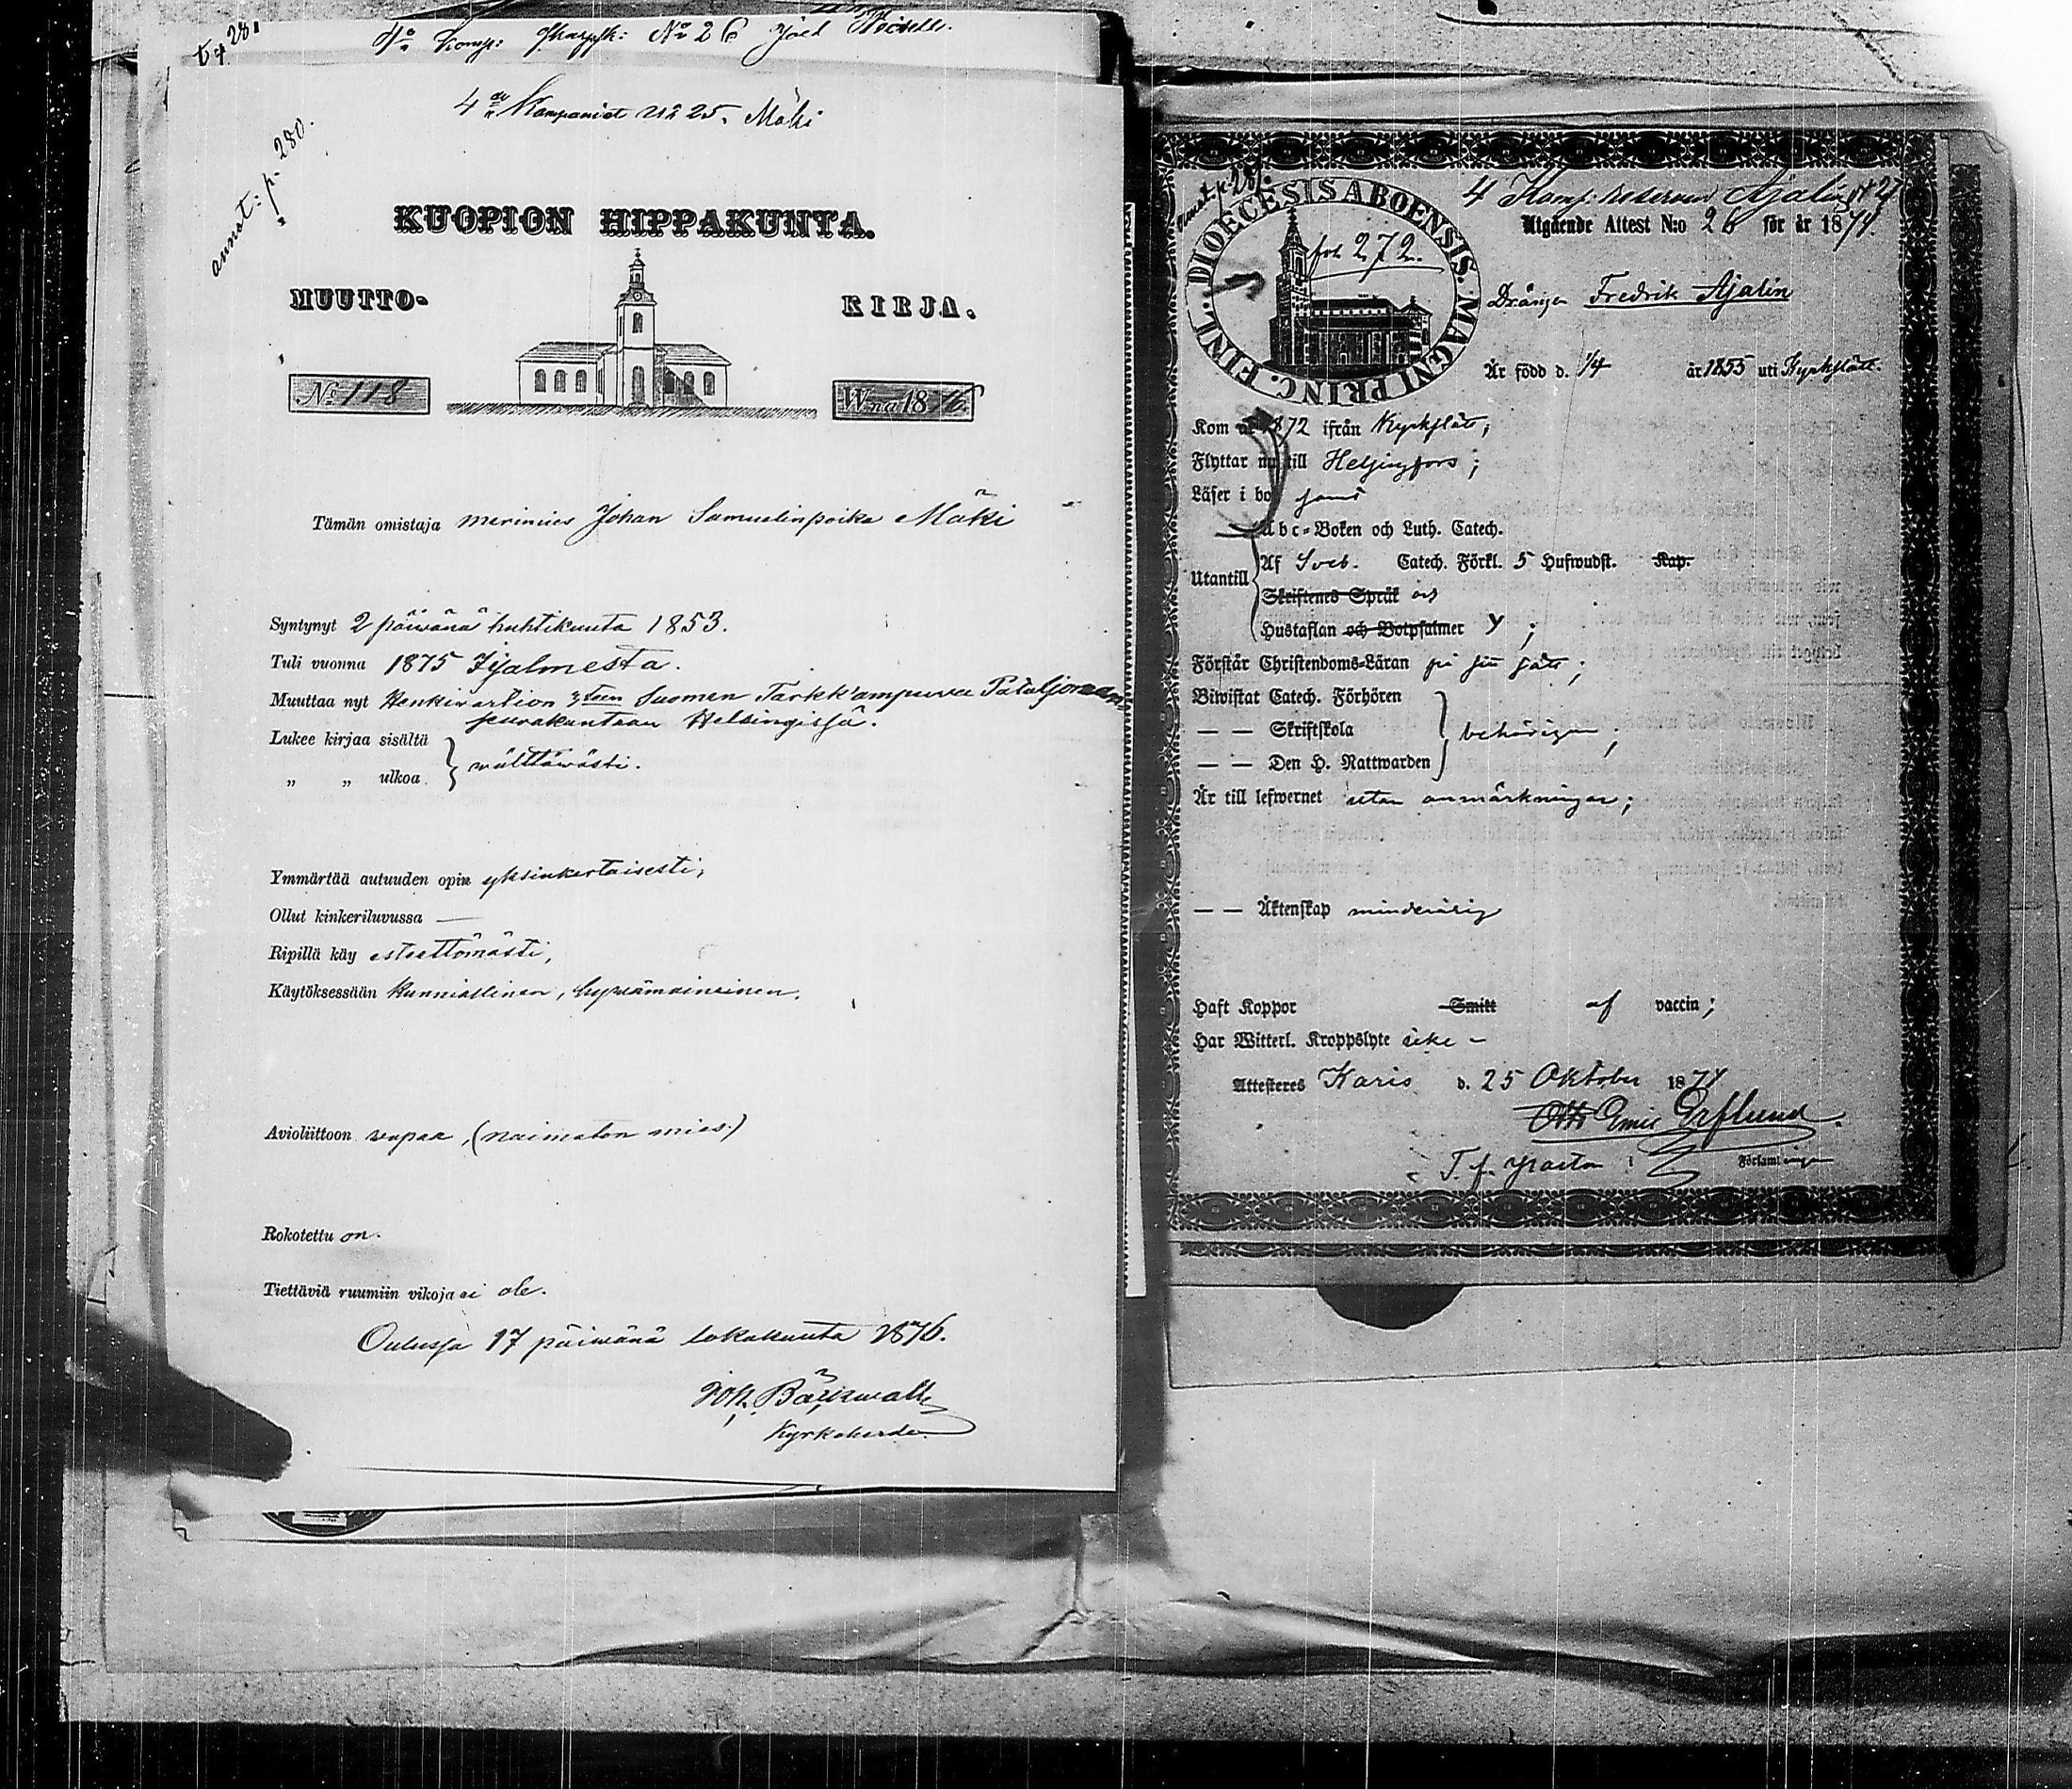 Komp: Skarpsk: No 26 Joel
4de Kompaniet No 25. Mäki
annot: p. 280.
KUOPION HIPPAKUNTA.
MUUTTO- KIRJA.
No 118 W:na 1876.
Tämän omistaja merimies Johan Samuelinpoika Mäki
Syntynyt 2 päiwänä huhtikuuta 1853.
Tuli vuonna 1875 Iijalmesta.
Muuttaa nyt Henkivartion 3:teen Suomen Tarkk'ampuva Pataljonan
seurakuntaan Helsingissä.
Lukee kirjaa sisältä
„ „ ulkoa } wälttäwästi.
Ymmärtää autuuden opin yksinkertaisesti,
Ollut kinkeriluvussa —
Ripillä käy esteettömästi,
Käytöksessään kunniallinen, hywämaineinen.
Avioliittoon vapaa, (naimaton mies.)
Rokotettu on.
Tiettäviä ruumiin vikoja ei ole.
Oulussa 17 päiwänä lokakuuta 1876.
Joh. Bäckwall
Kyrkoherde
4 Komp: Ajalin No 27
FINL. DIOECESIS ABOENSIS. MAGNI PRINC.
fol 272.
Utgående Attest N:o 26 för år 1874
Drängen Fredrik Ajalin
Är född d. 1/4 år 1855 uti Kyrkslätt.
Kom år 1872 ifrån Kyrkslätt;
Flyttar nu till Helsingfors;
Läser i bok
Abc-Boken och Luth. Catech.
Utantill Af Sveb. Catech. Förkl. 5 Hufwudst. Kap.
Skriftenes Språk och
Hustaflan och Botpsalmer ;
Förstår Christendoms-Läran på sitt sätt;
Biwistat Catech. Förhören
— — Skriftskola } behörigen;
— — Den H. Nattwarden
Är till lefwernet utan anmärkningar;
— — Äktenskap minderårig
Haft Koppor Smitt af vaccin;
Har Witterl. Kroppslyte icke –
Attesteres Karis d. 25 Oktober 1874
Otto Emil
T. f. Pastor i Församlingen